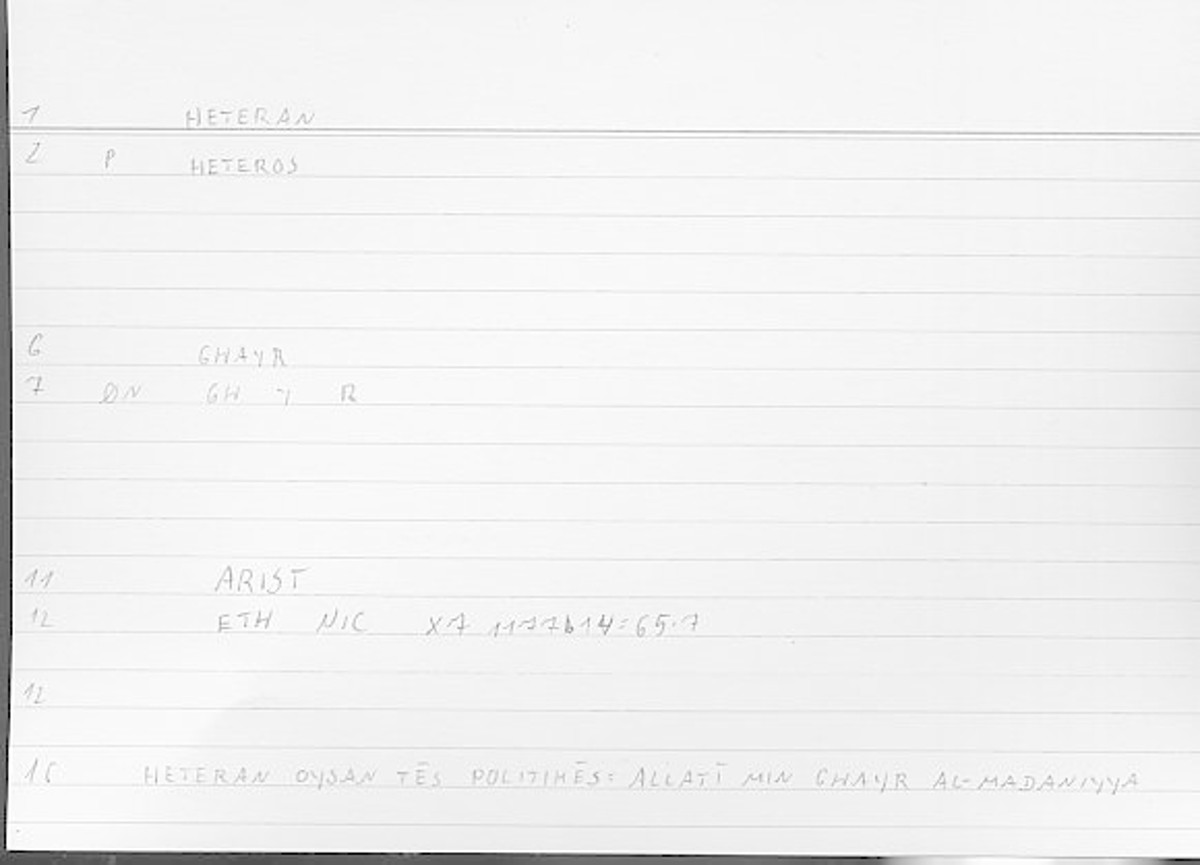 1 HETERAN
2 P HETEROS
6 GHAYR
7 ØN GH Y R
11 ARIST
12 ETH NIC X7 1177b14=65.7
12
16 HETERAN OYSAN TĒS POLITIKĒS= ALLATĪ MIN GHAYR AL-MADANIYYA